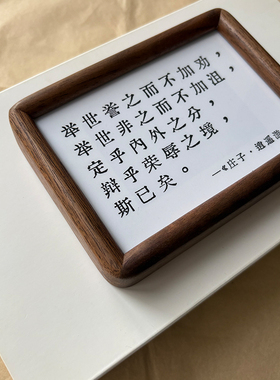 举世誉之而不加劝，
举世非之而不加沮，
定乎内外之分，
辩乎荣辱之境，
斯已矣。
—《庄子·逍遥游